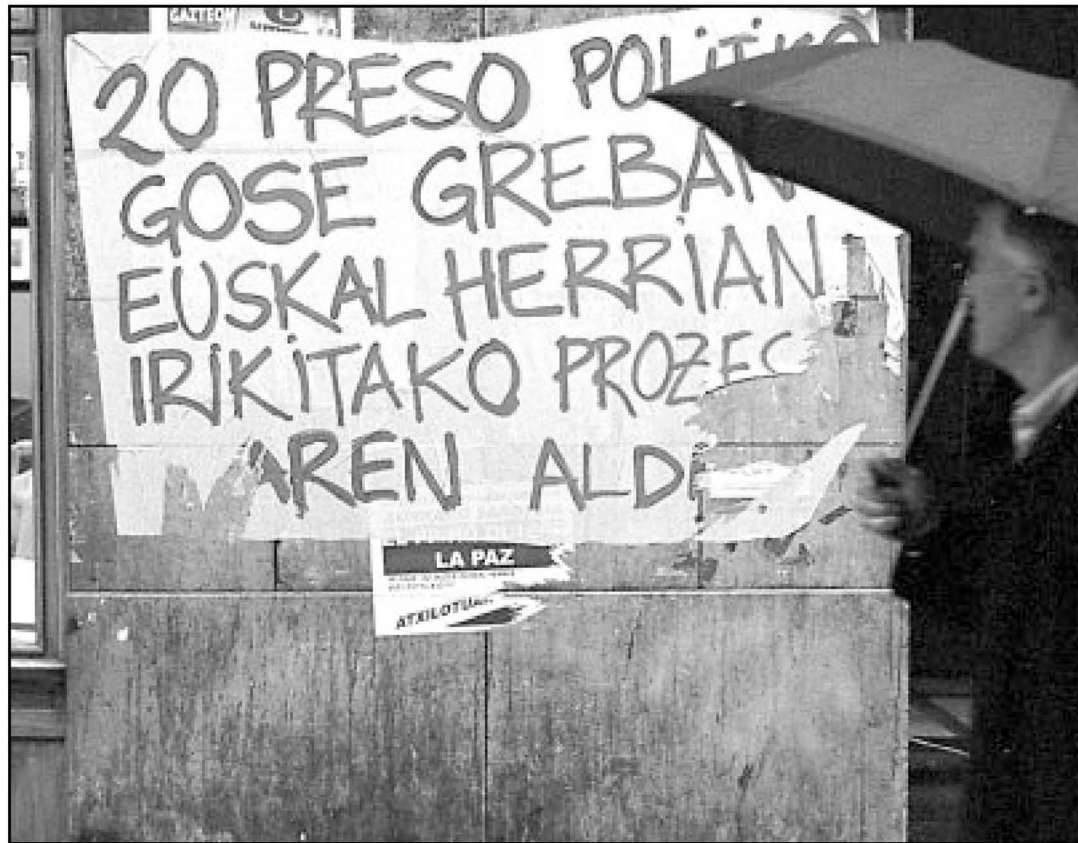 GAZTEOK
20 PRESO POLITIKO
GOSE GREBAN
EUSKAL HERRIAN
IRIKITAKO PROZEC
AREN ALDE
LA PAZ
ATXILOTUAK